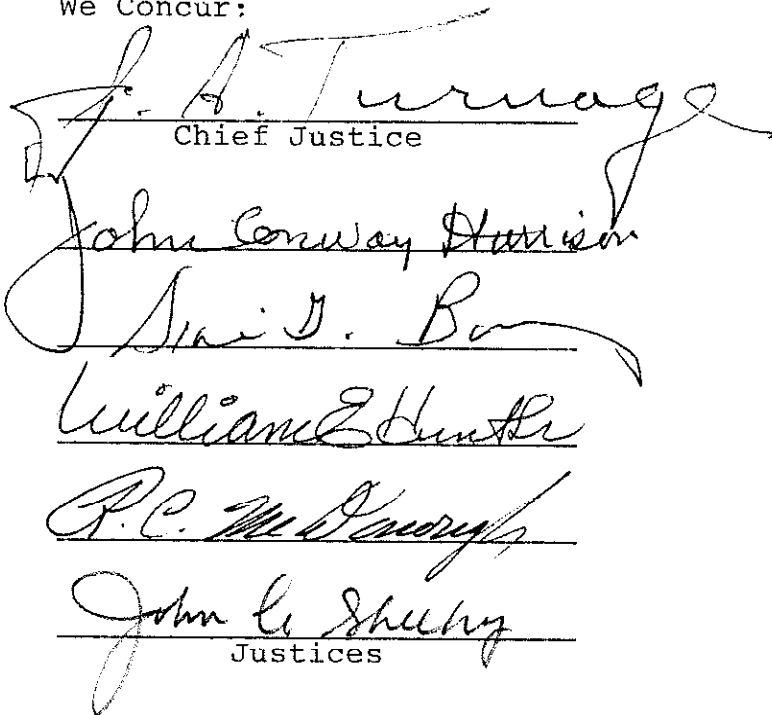 We Concur:
J. A. Turnage
Chief Justice
John Conway Harrison
G. B
William E Hunter
R. C. McDonough
John C. Sheehy
Justices